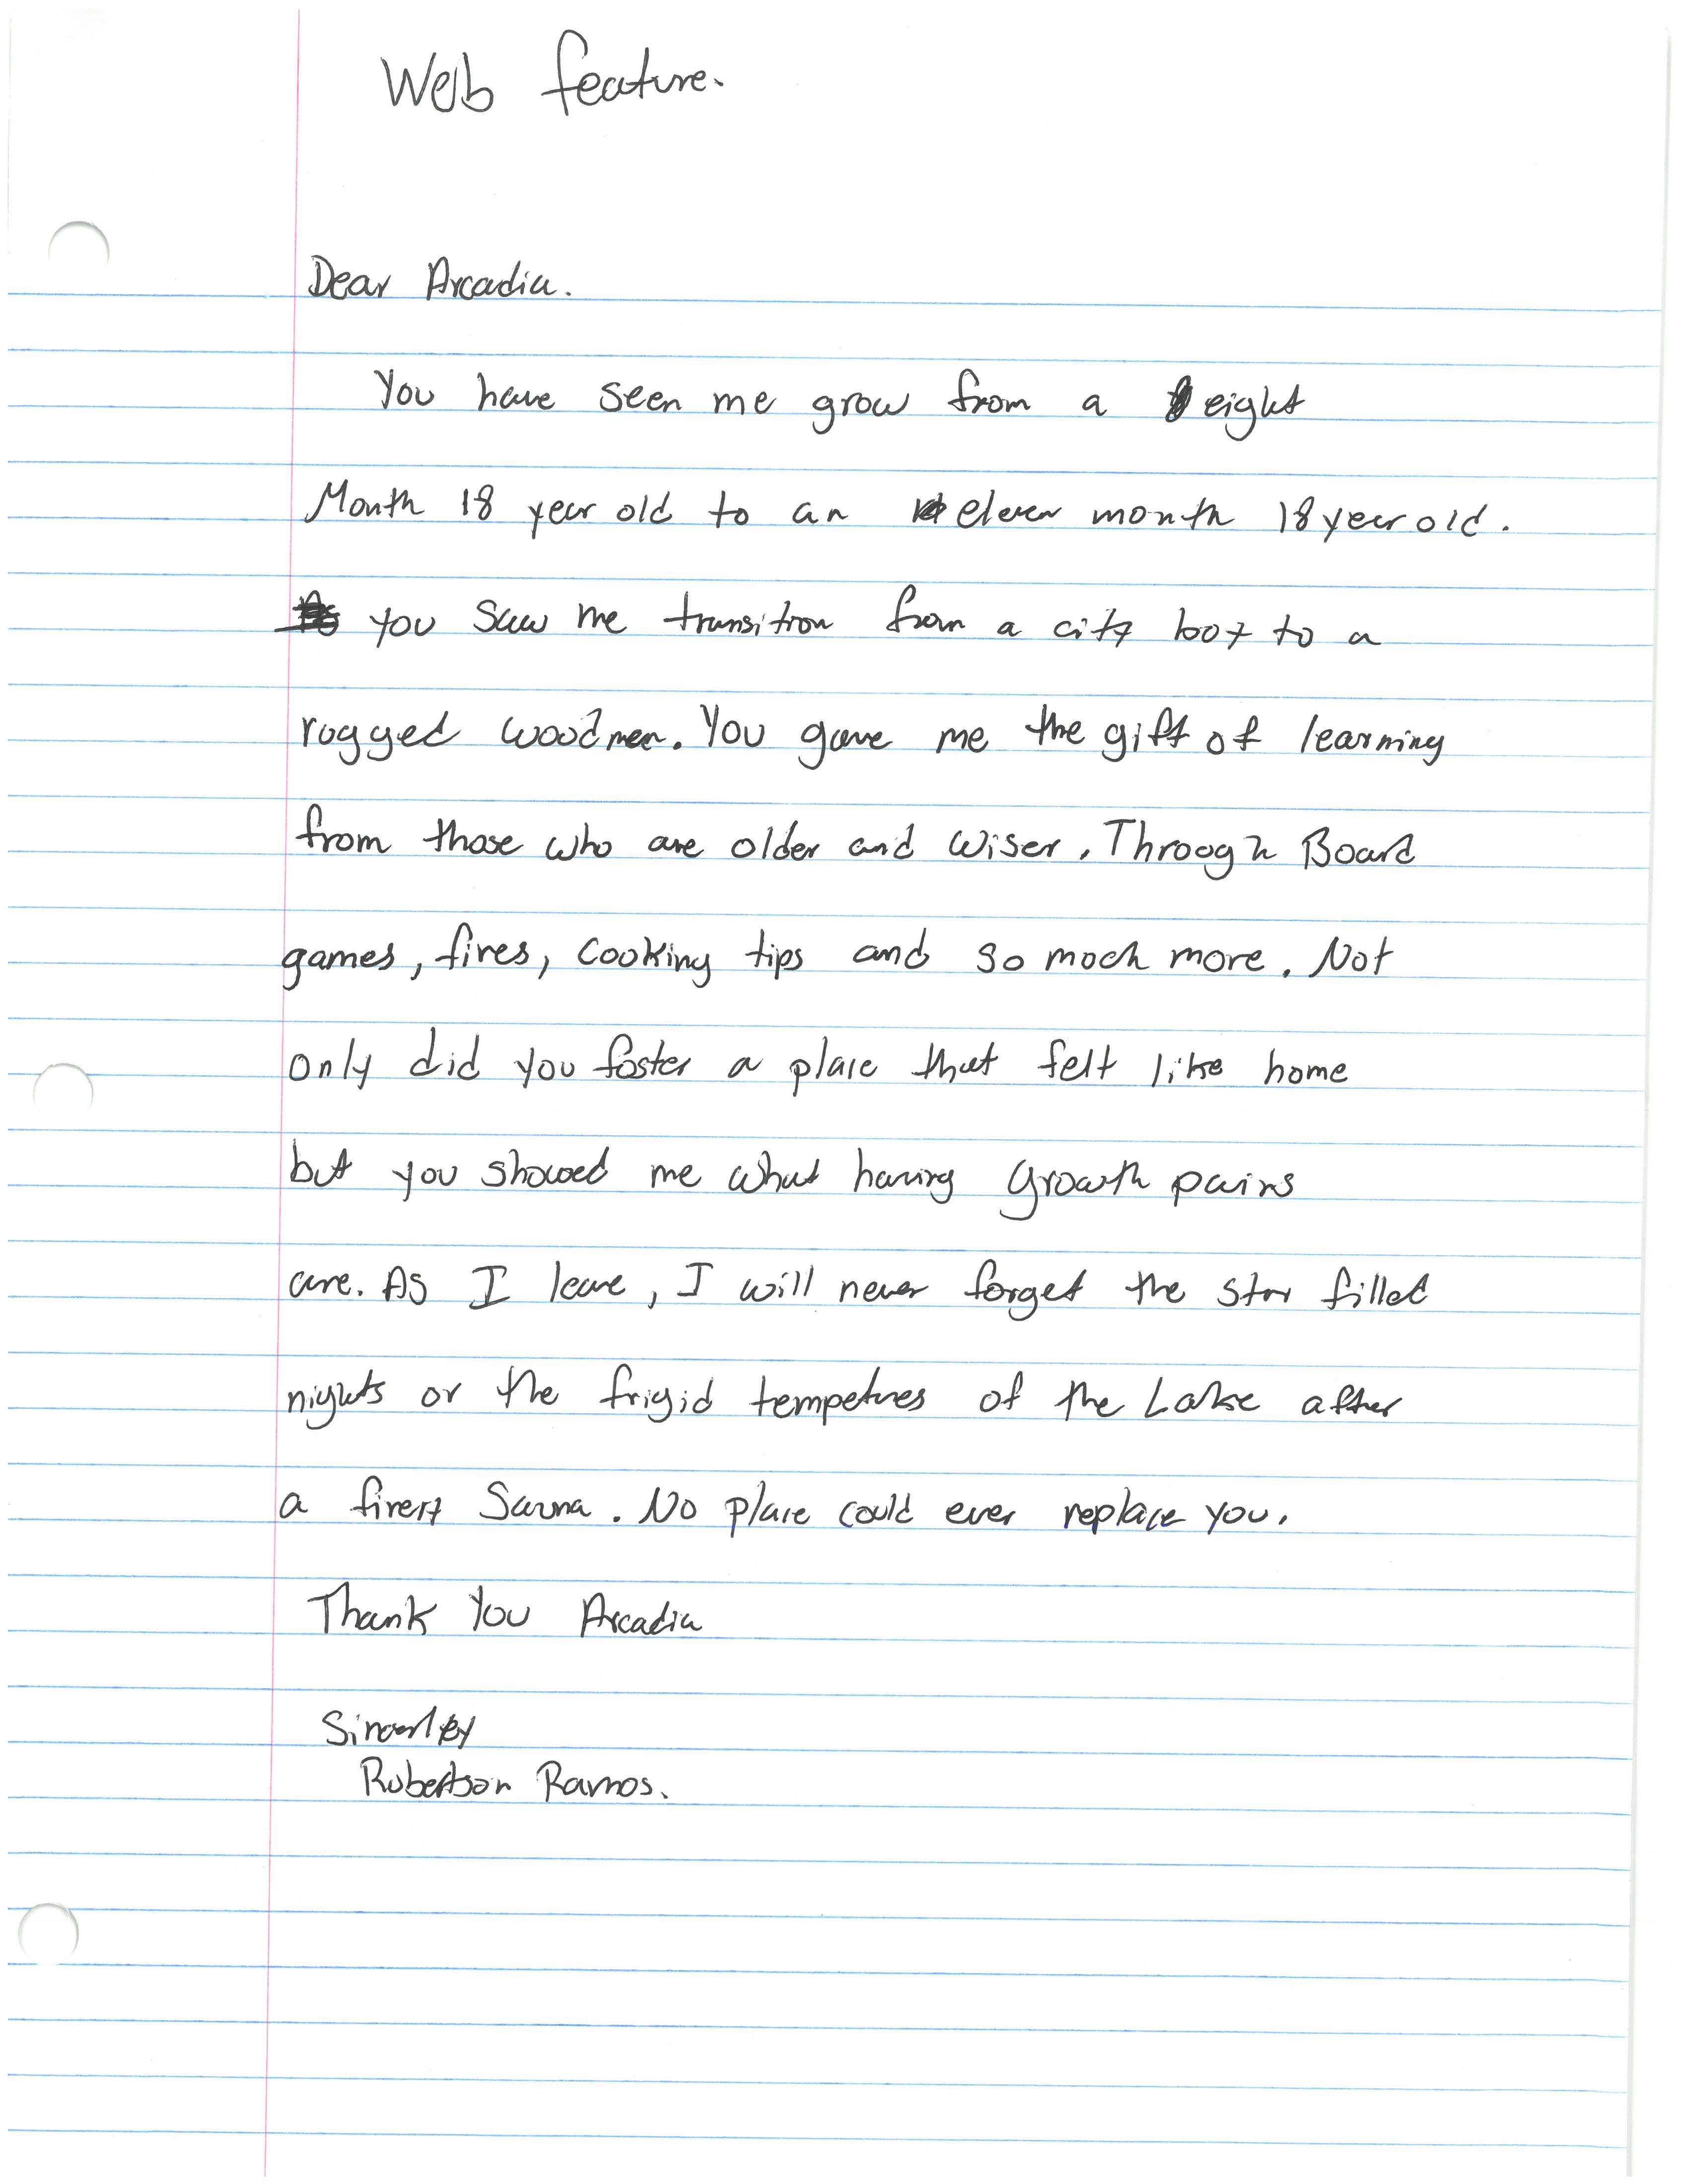 Web feature.
Dear Arcadia.
You have seen me grow from a eight
Month 18 year old to an eleven month 18 year old.
you saw me transition from a city boy to a
rugged woodmen. You gave me the gift of learning
from those who are older and wiser. Through Board
games, fires, cooking tips and so much more. Not
only did you foster a place that felt like home
but you showed me what having Growth pains
are. As I leave, I will never forget the star filled
nights or the frigid tempetures of the Lake after
a firery Sauna. No place could ever replace you.
Thank You Arcadia
Sincerley
Robertson Ramos.